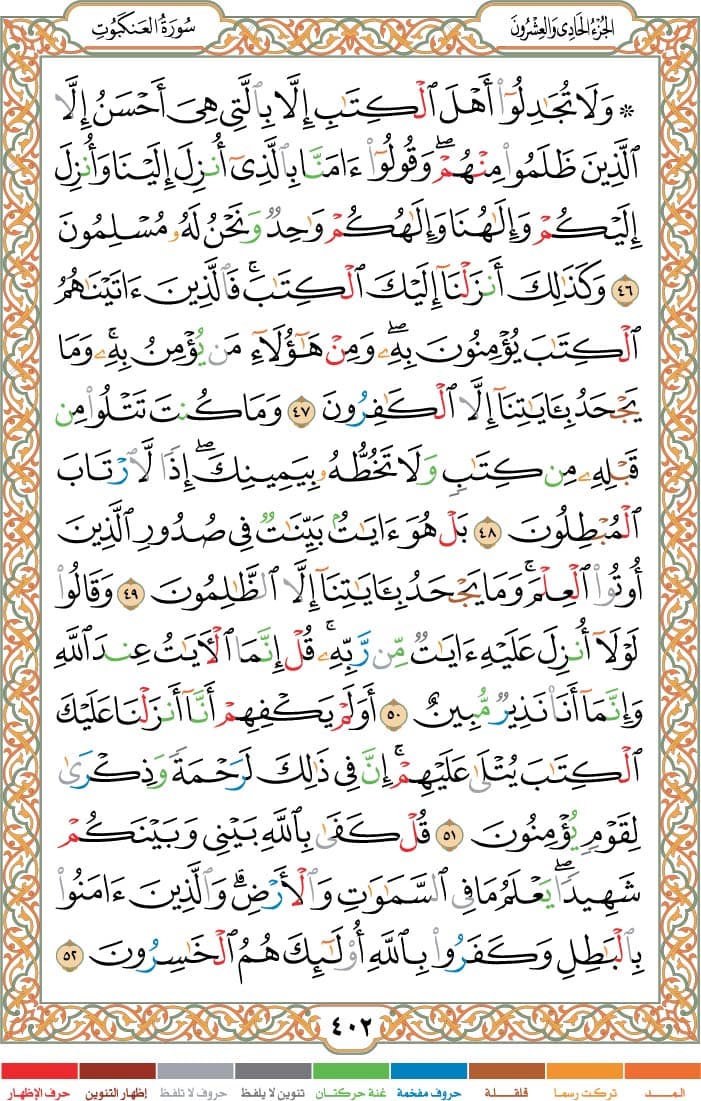 الجُزءُ الحَادِى وَالعِشرُونَ
سُورَةُ العَنكَبُوتِ
۞ وَلَا تُجَٰدِلُوٓا۟ أَهْلَ ٱلْكِتَٰبِ إِلَّا بِٱلَّتِى هِىَ أَحْسَنُ إِلَّا
ٱلَّذِينَ ظَلَمُوا۟ مِنْهُمْ ۖ وَقُولُوٓا۟ ءَامَنَّا بِٱلَّذِىٓ أُنزِلَ إِلَيْنَا وَأُنزِلَ
إِلَيْكُمْ وَإِلَٰهُنَا وَإِلَٰهُكُمْ وَٰحِدٌ وَنَحْنُ لَهُۥ مُسْلِمُونَ
٤٦ وَكَذَٰلِكَ أَنزَلْنَآ إِلَيْكَ ٱلْكِتَٰبَ ۚ فَٱلَّذِينَ ءَاتَيْنَٰهُمُ
ٱلْكِتَٰبَ يُؤْمِنُونَ بِهِۦ ۖ وَمِنْ هَٰٓؤُلَآءِ مَن يُؤْمِنُ بِهِۦ ۚ وَمَا
يَجْحَدُ بِـَٔايَٰتِنَآ إِلَّا ٱلْكَٰفِرُونَ ٤٧ وَمَا كُنتَ تَتْلُوا۟ مِن
قَبْلِهِۦ مِن كِتَٰبٍ وَلَا تَخُطُّهُۥ بِيَمِينِكَ ۖ إِذًا لَّٱرْتَابَ
ٱلْمُبْطِلُونَ ٤٨ بَلْ هُوَ ءَايَٰتٌۢ بَيِّنَٰتٌ فِى صُدُورِ ٱلَّذِينَ
أُوتُوا۟ ٱلْعِلْمَ ۚ وَمَا يَجْحَدُ بِـَٔايَٰتِنَآ إِلَّا ٱلظَّٰلِمُونَ ٤٩ وَقَالُوا۟
لَوْلَآ أُنزِلَ عَلَيْهِ ءَايَٰتٌ مِّن رَّبِّهِۦ ۖ قُلْ إِنَّمَا ٱلْـَٔايَٰتُ عِندَ ٱللَّهِ
وَإِنَّمَآ أَنَا۠ نَذِيرٌ مُّبِينٌ ٥٠ أَوَلَمْ يَكْفِهِمْ أَنَّآ أَنزَلْنَا عَلَيْكَ
ٱلْكِتَٰبَ يُتْلَىٰ عَلَيْهِمْ ۚ إِنَّ فِى ذَٰلِكَ لَرَحْمَةً وَذِكْرَىٰ
لِقَوْمٍ يُؤْمِنُونَ ٥١ قُلْ كَفَىٰ بِٱللَّهِ بَيْنِى وَبَيْنَكُمْ
شَهِيدًا ۖ يَعْلَمُ مَا فِى ٱلسَّمَٰوَٰتِ وَٱلْأَرْضِ ۗ وَٱلَّذِينَ ءَامَنُوا۟
بِٱلْبَٰطِلِ وَكَفَرُوا۟ بِٱللَّهِ أُو۟لَٰٓئِكَ هُمُ ٱلْخَٰسِرُونَ ٥٢
٤٠٢
المـــد تركت رسما قلقـــلة حروف مفخمة غنة حركتـان تنوين لا يلفظ حروف لا تلفظ إظهار التنوين حرف الإظهار